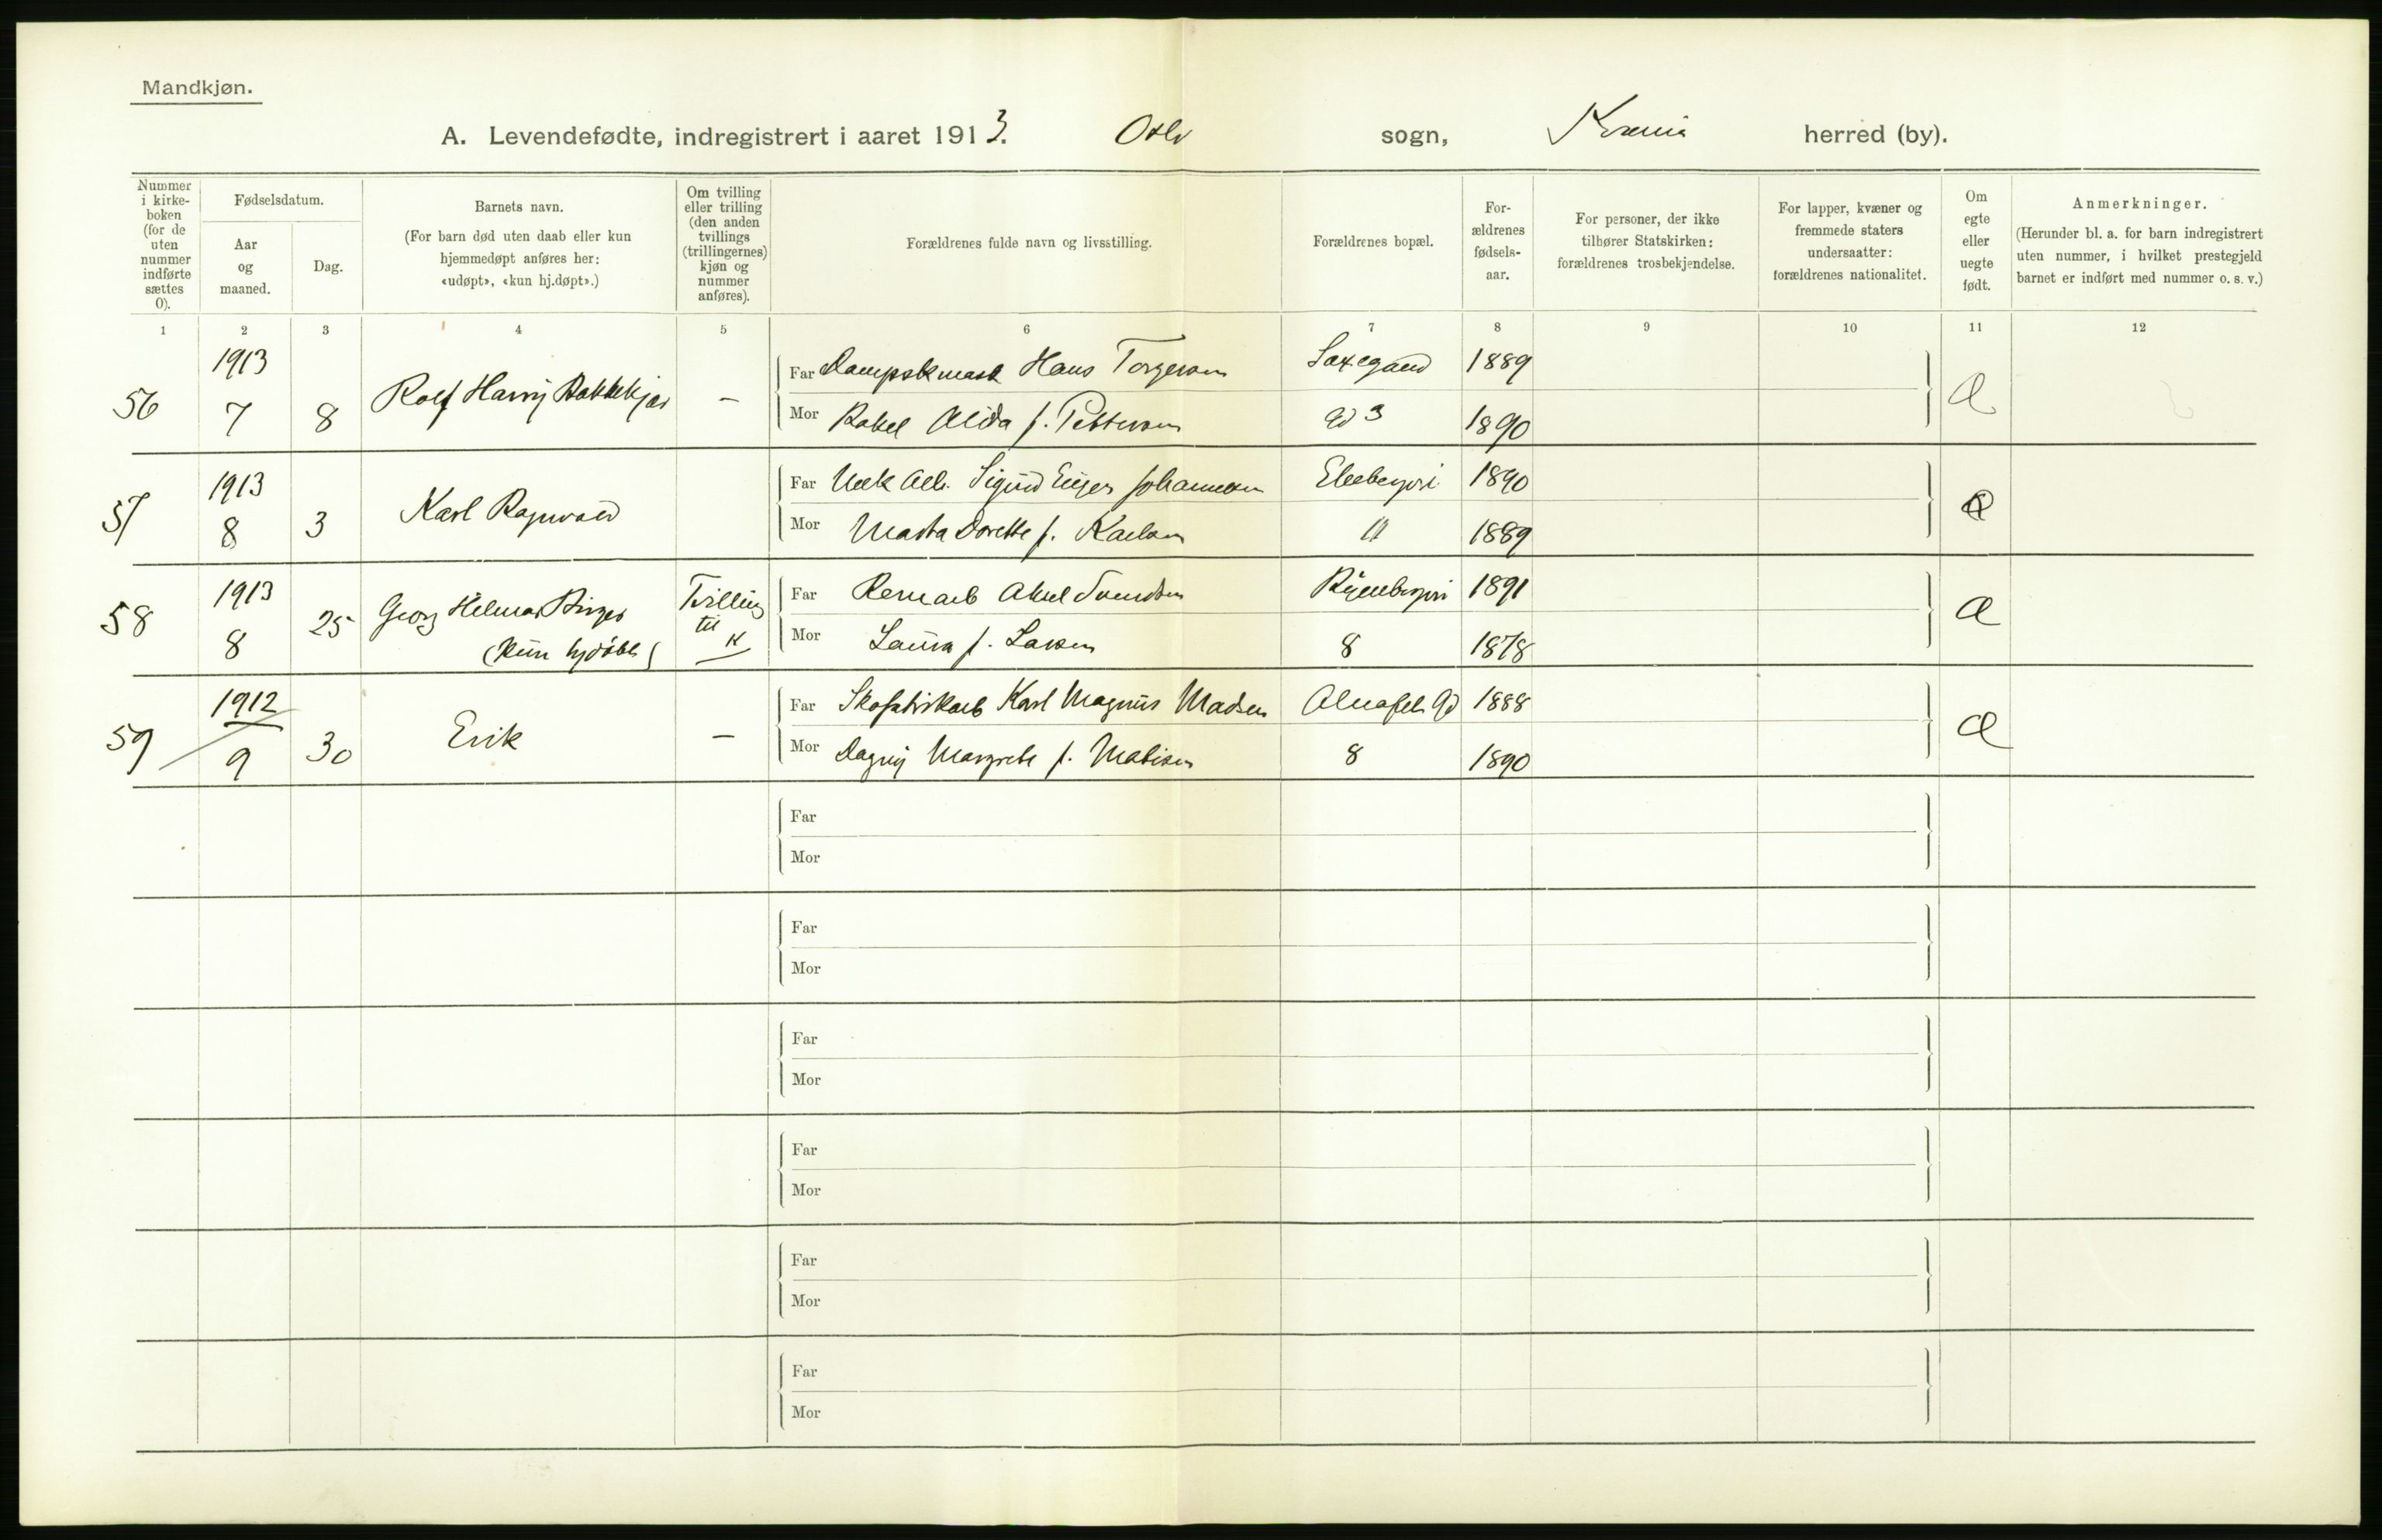 Mandkjøn.
A. Levendefødte, indregistrert i aaret 1913. Oslo sogn, Krania herred (by).
Nummer i kirke-boken (for de uten nummer indførte sættes 0).
Fødselsdatum.
Aar og maaned.
Dag.
Barnets navn.
(For barn død uten daab eller kun hjemmedøpt anføres her: «udøpt», «kun hj.døpt».)
Om tvilling eller trilling (den anden tvillings (trillingernes) kjøn og nummer anføres).
Forældrenes fulde navn og livsstilling.
Forældrenes bopæl.
For-ældrenes fødsels-aar.
For personer, der ikke tilhører Statskirken: forældrenes trosbekjendelse.
For lapper, kvæner og fremmede staters undersaatter: forældrenes nationalitet.
Om egte eller uegte født.
Anmerkninger.
(Herunder bl. a. for barn indregistrert uten nummer, i hvilket prestegjeld barnet er indført med nummer o. s. v.)
1 2 3 4 5 6 7 8 9 10 11 12
56 1913 7 8 Rolf Harry Bakkekjær –
Far Hans Torgersen 1889
Mor Rakel Alida f. Pettersen Gd 3 1890
57 1913 8 3 Karl Ragnvald
Far Sigurd Johannesen 1890
Mor Marta Dorette f. Karlsen 11 1889
58 1913 8 25 Georg Hilmar Birger
(kun hjdøbt) Tvilling til K
Far Axel Svendsen 1891
Mor Laura f. Larsen 8 1878
59 1912 9 30 Erik –
Far Skofabrikarb Karl Magnus Madsen Alnafet Gd 1888
Mor Dagny Margrete f. Matisen 8 1890
Far
Mor
Far
Mor
Far
Mor
Far
Mor
Far
Mor
Far
Mor